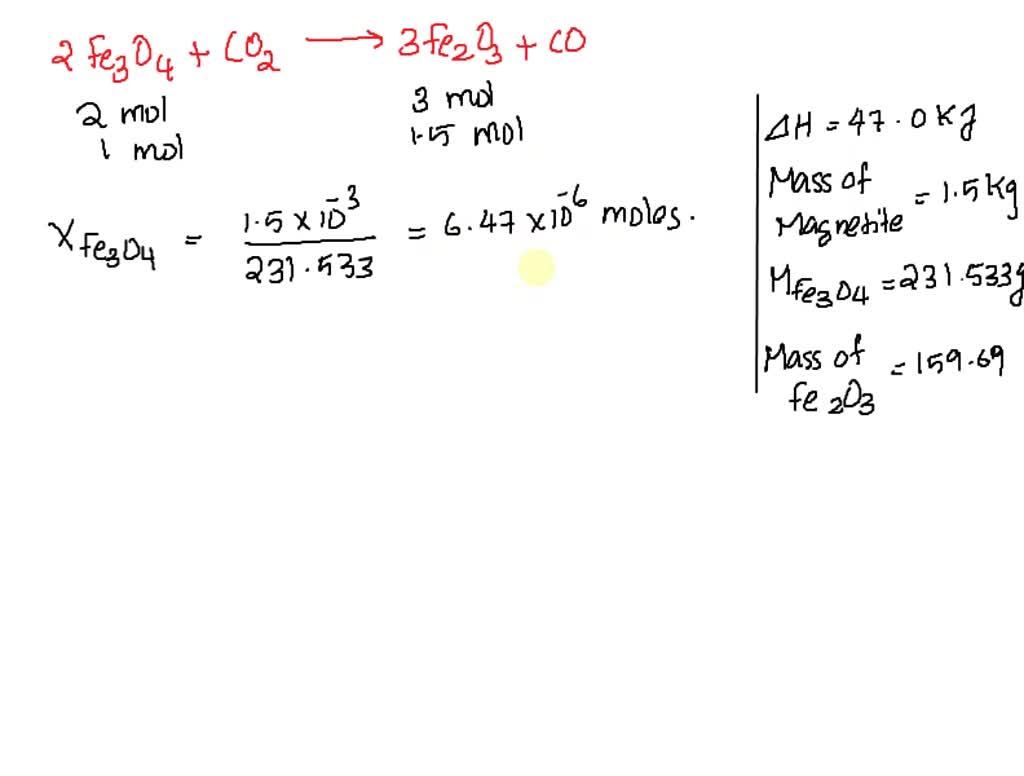 2 Fe3O4 + CO2 ⟶ 3Fe2O3 + CO
2 mol 3 mol
1 mol 1.5 mol
XFe3O4 = 1.5 × 10^-3 / 231.533 = 6.47 × 10^-6 moles.
ΔH = 47.0 KJ
Mass of Magnetite = 1.5 Kg
MFe3O4 = 231.533g
Mass of Fe2O3 = 159.69